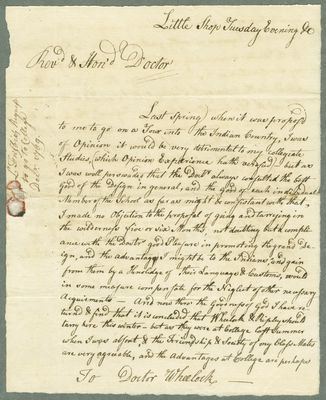 Little Shop Tuesday Evening &c
Rev.d & Hon.d Doctor
Last Spring when it was propos'd
to me to go on a Tour into the Indian Country, I was
of Opinion it would be very detrimental to my Collegiate
Studies, (which Opinion Experience hath
but as
I was well perswaded that the Doct.r always consulted the best
Good of the Design in general, and the Good of each individual
Member of the School as far as might be consistant with that,
I made no Objection to the proposal of going and tarrying in
the wilderness five or six Months, not doubting but a compli-
ance with the Doctor good Pleasure in promoting the grand De-
sign, and the advantage I might be to the Indians, and gain
from them by a Knoledge of their Language & Customs, would
in some measure compensate for the Neglect of other necessary
Acquirements — And now thro the Goodness of God I have re-
turn'd & find that it is concluded that Wheelock & Ripley should
tarry here this winter — but as they were at College last Summer
when I was absent, & the Friendship & Society of my Class-Mates
are very agreable, and the Advantages at College are perhaps
To Doctor Wheelock —